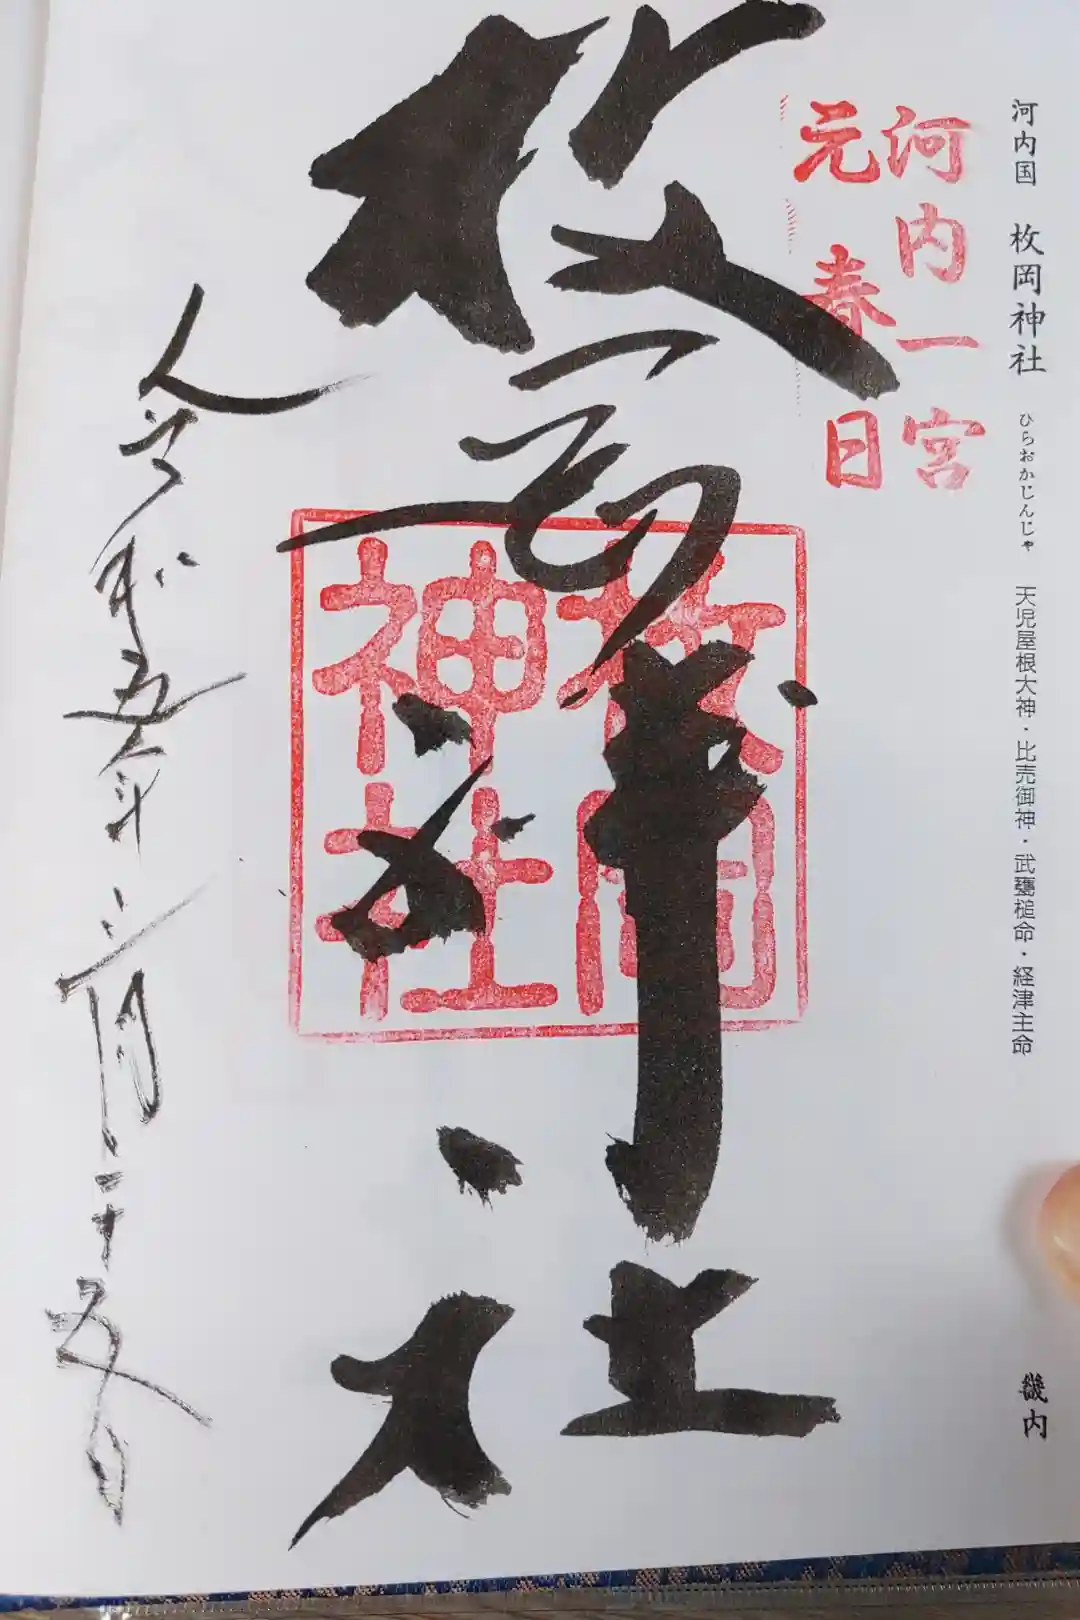 河内国 枚岡神社 ひらおかじんじゃ 天児屋根大神・比売御神・武甕槌命・経津主命
畿内
河内一宮
元春日
枚岡神社
枚岡
神社
令和五年六月二十五日